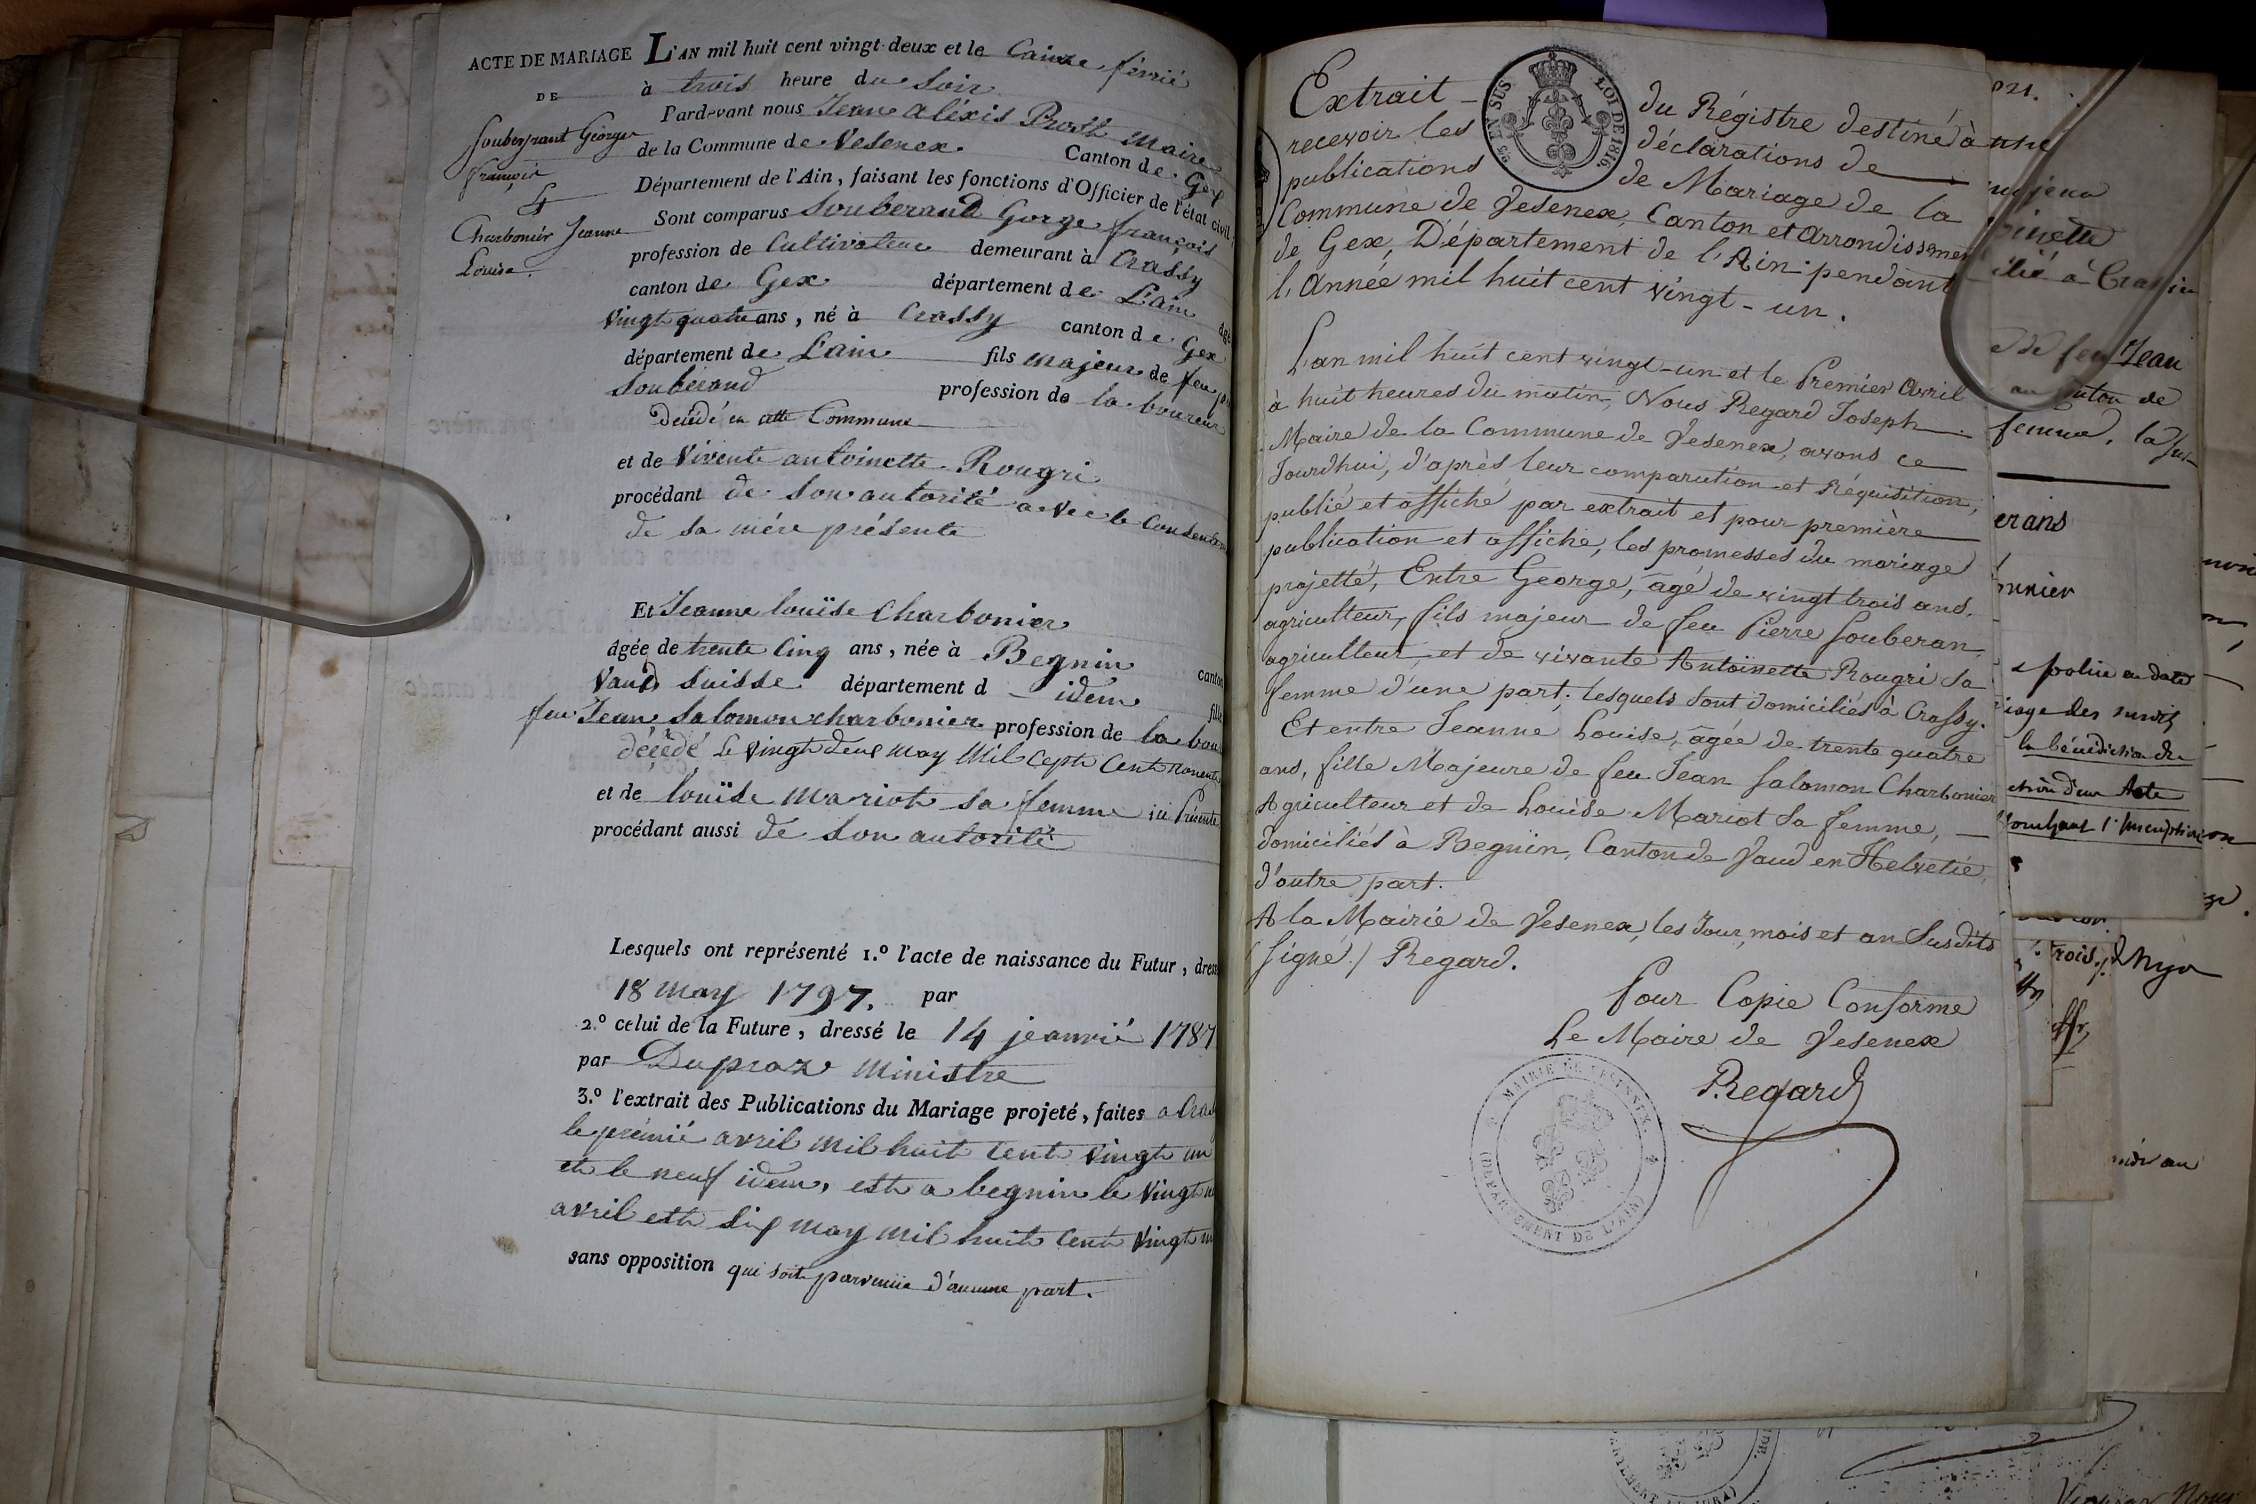 ACTE DE MARIAGE
DE
Souberprant George
françois
Et
Charbonier Jeanne
Louise.
L'AN mil huit cent vingt-deux et le Cainze févrié
à trois heure du Soir
Pardevant nous Jean aléxis Prost Maire
de la Commune de Vesenex. Canton de Gex
Département de l'Ain, faisant les fonctions d'Officier de l'état civil,
Sont comparus Souberand Gorge françois
profession de Cultivateur demeurant à Crassy
canton de Gex département de L'ain âgé
vingt quatre ans, né à Crassy canton de Gex
département de L'ain fils majeur de feu
Souberand profession de la boureur
décédé en cette Commune
et de Vivente antoinette Rougri
procédant de Son autorité avec le Consente
de sa mére présente
Et Jeanne louïse Charbonier
âgée de trente Cinq ans, née à Begnin canton
Vaud Suisse département d idem fille
feu Jean Salomon charbonier profession de la bou
décédé le vingt deux may Mil cept Cent nonente
et de louïse Mariot sa femme ici Présente
procédant aussi de Son autorité
Lesquels ont représenté 1.º l'acte de naissance du Futur, dres
18 may 1797. par
2.º celui de la Future, dressé le 14 jeanvié 1787
par Dupraz Ministre
3.º l'extrait des Publications du Mariage projeté, faites a Cras
le prémié avril mil huit Cent vingt un
et le neuf idem, est a begnin le vingt
avril est Six may mil huit Cent vingt
sans opposition qui soit parvenüe d'aucune part.
Extrait du Régistre destiné à
recevoir les déclarations de
publications de Mariage de la
Commune de Vesenex, Canton et arrondissemen
de Gex, Département de l'Ain pendant
l'Année mil huit cent vingt-un.
25 EN SUS LOI DE 1816.
L'an mil huit cent vingt-un et le Premier Avril
à huit heures du matin, Nous Regard Joseph
Maire de la Commune de Vesenex, avons ce
Jourdhui, d'après leur comparution et Réquisition,
publié et affiché par extrait et pour première
publication et affiche, les promesses du mariage
projetté, Entre George, âgé de vingt trois ans.
agriculteur, fils majeur de feu Pierre Souberan
agriculteur et de vivante Antoinette Rougri Sa
femme d'une part; lesquels Sont domiciliés à Crassy.
Et entre Jeanne Louise, âgée de trente quatre
ans, fille Majeure de feu Jean Salomon Charbonier
Agriculteur et de Louise Mariot Sa femme,
domiciliés à Beguin, Canton de Vaud en Helvetié,
d'autre part.
A la Mairie de Vesenex, les Jour, mois et an Susdits
(Signé) Regard.
Pour Copie Conforme
Le Maire de Vesenex
Regard
MAIRIE DE VESENNEX.
(DÉPARTEMENT DE L'AIN)
821.
inette
à Crassier
de feu Jean
femme. la
erans
onnier
police en date
la bénédiction de
Acte
l'Inscription
trois